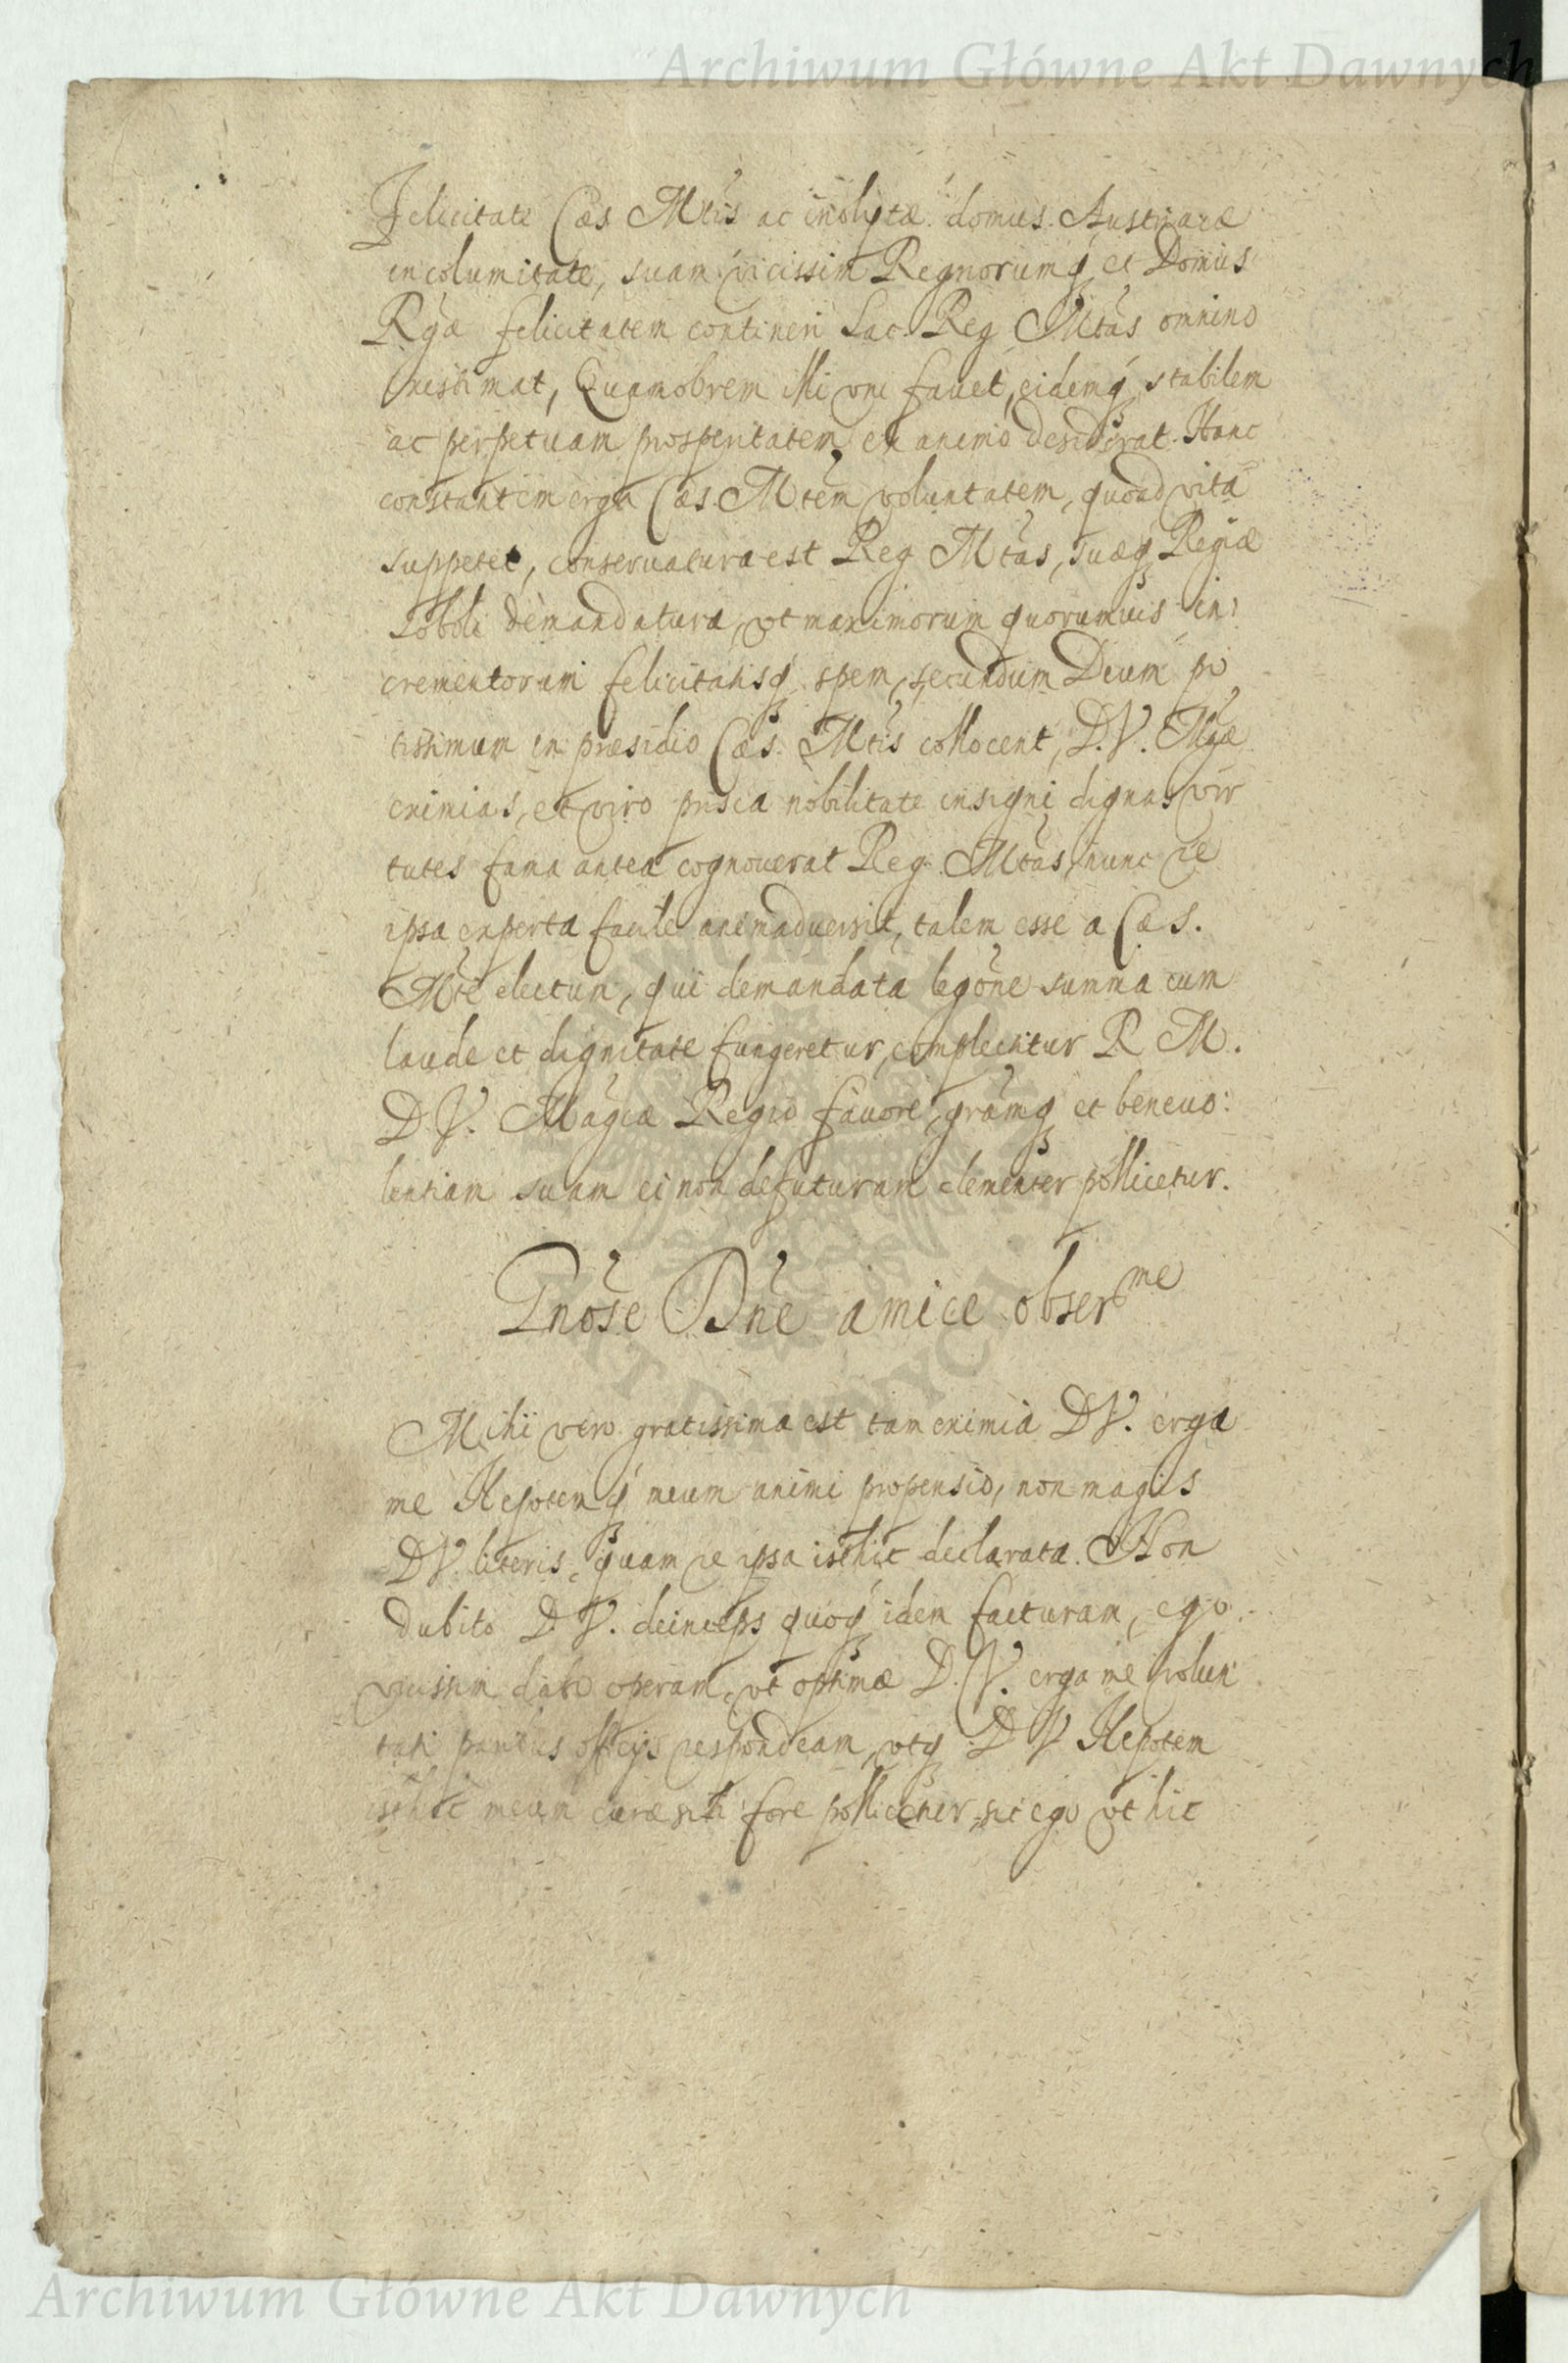 Archiwum Główne Akt Dawnych
Felicitate Cæs Mtis ac inclytæ domus Austriacæ
incolumitate, suam vicissim Regnorumq́ et Domus
Rgæ felicitatem contineri Sac. Reg Mtas omnino
existimat, Quamobrem illi uni favet, eidemq́ stabilem
ac perpetuam prosperitatem ex animo desiderat. Hanc
constantem erga Cæs. Mtem voluntatem, quoad vita
suppetet, conservatura est Reg Mtas, suæq Regiæ
Soboli demandatura, vt maximorum quorumuis in:
crementorum felicitatisq́ spem, secundum Deum po
tissimum in præsidio Cæs. Mtis collocent, D. V. Mgæ
eximias, et viro prisca nobilitate insigni dignas vir
tutes fama antea cognouerat Reg. Mtas, nunc re
ipsa experta facile animaduersit, talem esse a Cæs.
Mte electum, qui demandata legõne summa cum
laude et dignitate fungeretur, complectitur R M.
D V. Magcæ Regio favore, grãmq́ et beneuo:
lentiam suam ei non defuturam clementer pollicetur.
Gnose Dñe amice obserᵐᵉ
Mihi vero gratissima est tam eximia D V. erga
me Nepotemq́ meum animi propensio, non magis
D V. literis, quam re ipsa isthic declarata. Non
dubito D. V. deinceps quoq́ idem facturam, ego
vicissim dabo operam, vt optimæ D. V. erga me volun
tati paribus officijs respondeam, vtq D V Nepotem
isthic meum curæ sibi fore pollicetur, sic ego vt hic
Archiwum Główne Akt Dawnych